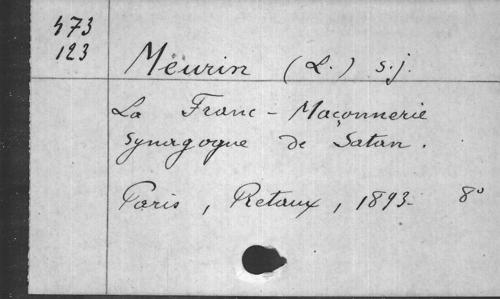 473
123
Meurin (L.) s.j.
La Franc-Maçonnerie
synagogue de Satan.
Paris, Retaux, 1893. 8°